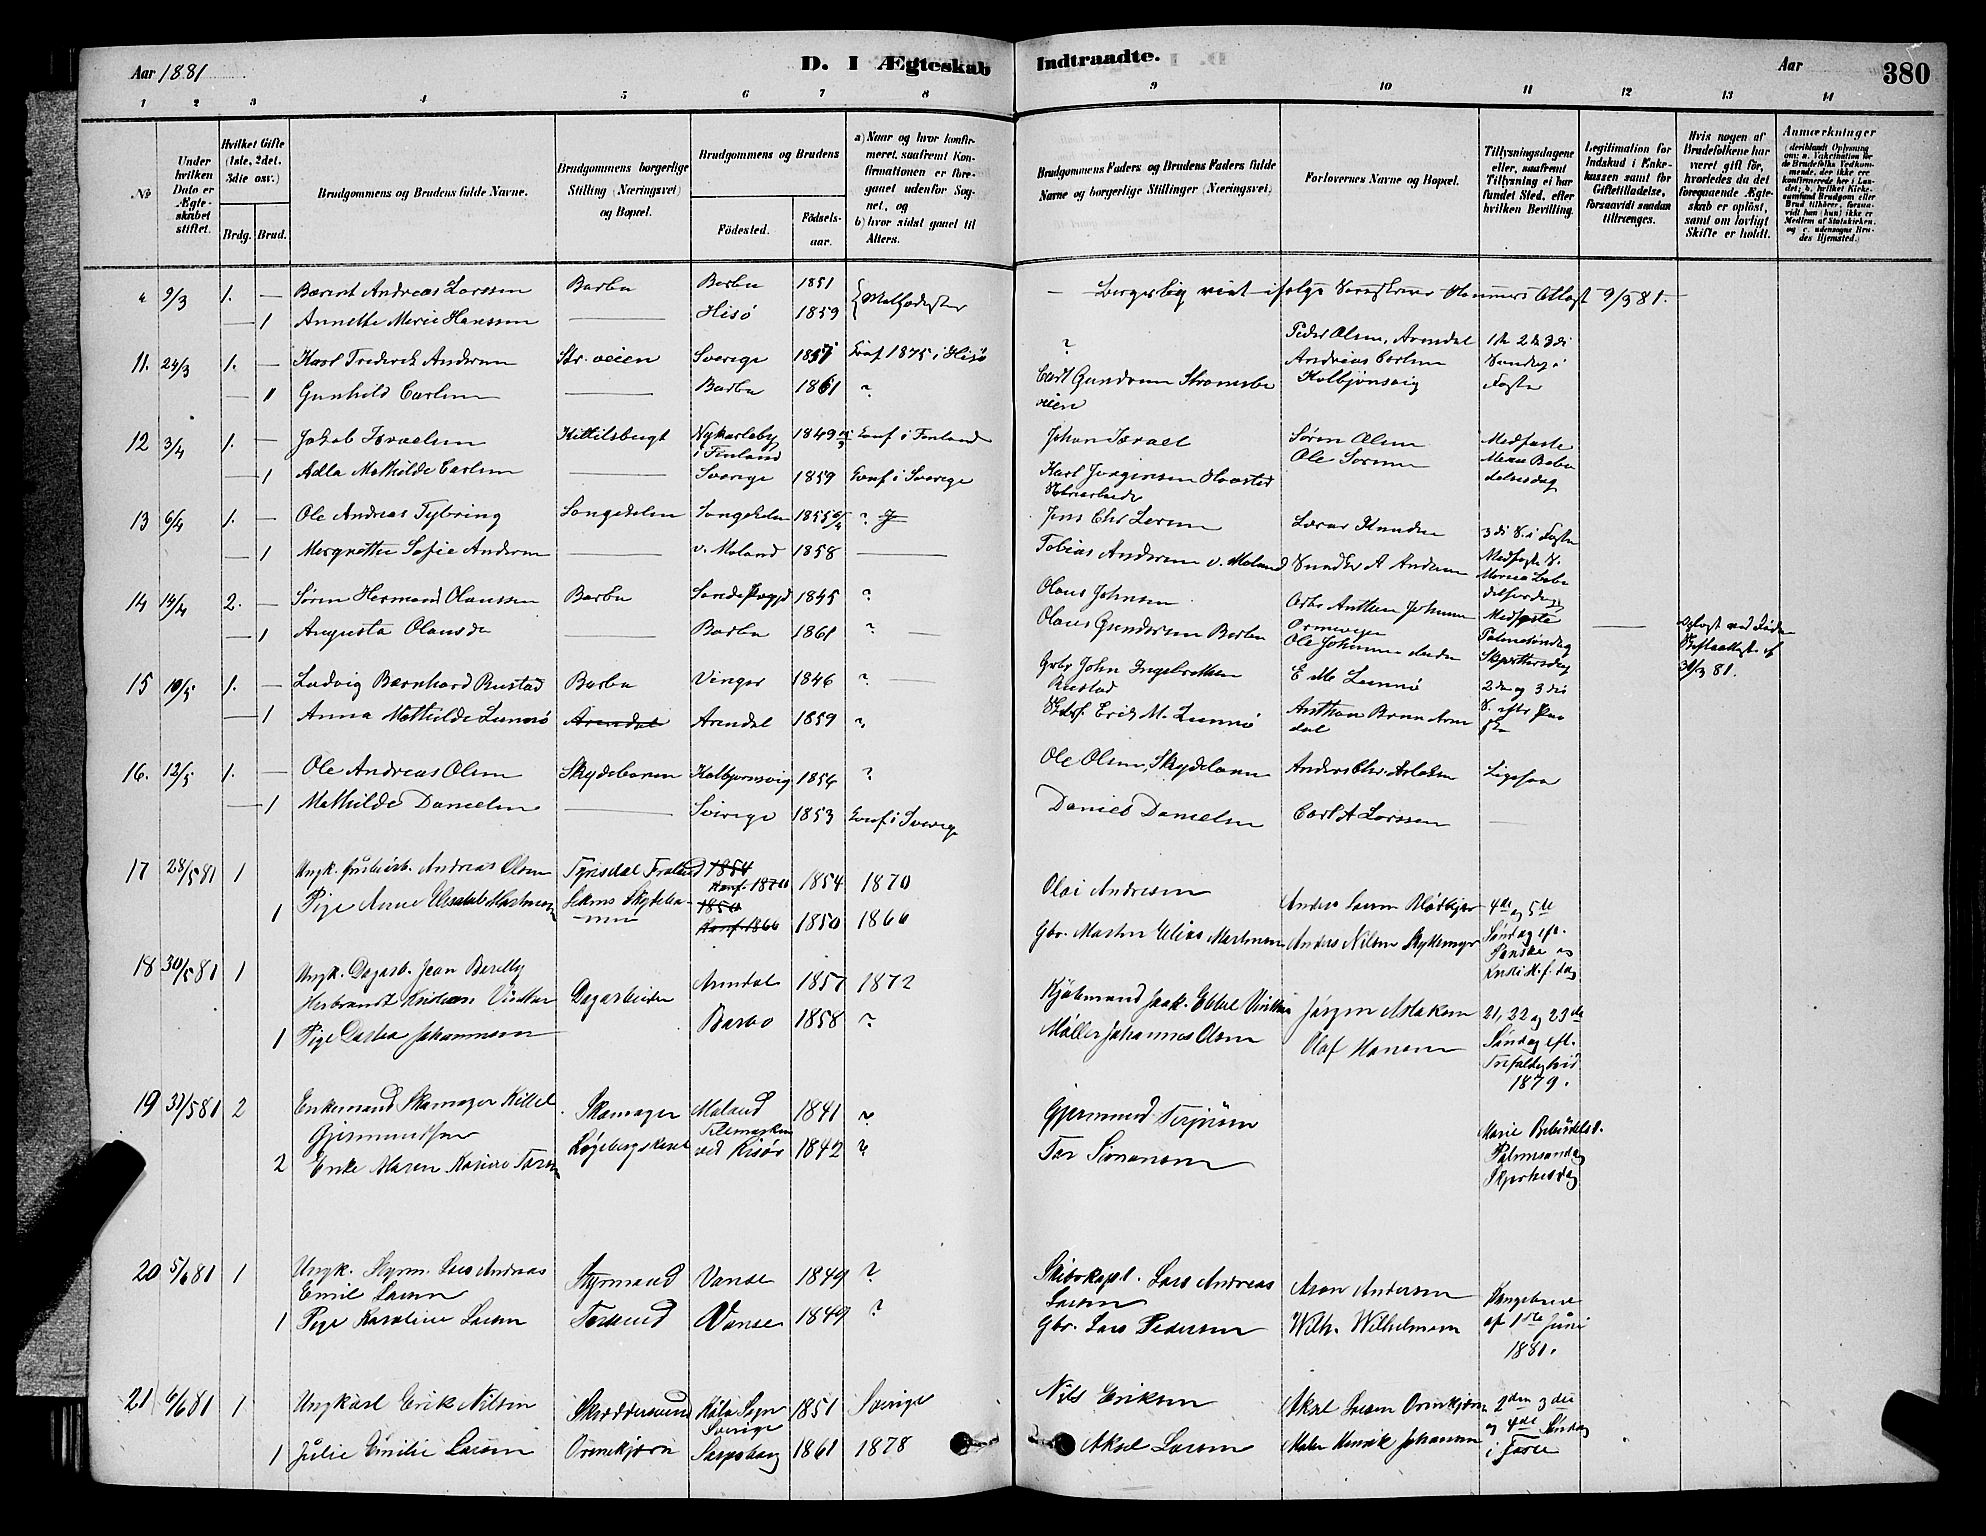 Aar 1881
D. I Ægteskab Indtraadte.
Aar
380
1 2 3 4 5 6 7 8 9 10 11 12 13 14
No
Under hvilken Dato er Ægteskabet stiftet.
Hvilket Gifte (1ste, 2det, 3die osv.)
Brdg. Brud.
Brudgommens og Brudens fulde Navne.
Brudgommens borgerlige Stilling (Næringsvei) og Bopæl.
Brudgommens og Brudens
Födested.
Födselsaar.
a) Naar og hvor konfirmeret, saafremt Konfirmationen er foregaaet udenfor Sognet, og
b) hvor sidst gaaet til Alters.
Brudgommens Faders og Brudens Faders fulde Navne og borgerlige Stillinger (Næringsvei).
Forlovernes Navne og Bopæl.
Tillysningsdagene eller, saafremt Tillysning ei har fundet Sted, efter hvilken Bevilling.
Legitimation for Indskud i Enkekassen samt for Giftetilladelse, forsaavidt saadan tiltrænges.
Hvis nogen af Brudefolkene har været gift för, hvorledes da det foregaaende Ægteskab er oplöst, samt om lovligt Skifte er holdt.
Anmærkninger
9/3 1. — Berent Andreas Larssen Barbu Barbu 1851
— 1 Annette Marie Hanssen — Hisö 1859
Borgerlig viet 9/3 81.
11. 24/3 1. — Karl Frederik Andersen Str. veien Sverige 1857 Conf 1875 i Hisö ? Peder Olsen, Arendal 1ste 2de 3die
— " Gunhild Carlsen — Barbu 1861 ? Carl Gundersen Strömsbo veien Andreas Carlsen Kolbjönsvig Söndag i Faste
12 3/4 1. — Jakob Israelsen Kittelsbugt Nykarleby i Finland 1849 Conf i Finland Johan Israel Sören Olsen Midfaste
— 1 Adla Mathilde Carlsen — Sverige 1859 Conf i Sverige Karl Jörgensen Ole Sörensen Maria Bebudelsesdag
13 6/4 1. — Ole Andreas Tybring Songedalen Songedalen 1855 ? Jens Chr Larsen Lærer Knudsen 3die S. i Faste
— 1 Margrethe Sofie Andersen — v. Moland 1858 — Tobias Andersen v. Moland A Andersen Midfaste S. Maria Bebudelsesdag
14 14/4 2. — Sören Hermand Olaussen Barbu 1845 ? Olaus Johnsen Anthon Johnsen Midfaste
— 1 Augusta Olausdr — Barbu 1861 ? — Olaus Gundersen Barbu Ole Johannesen Palmesöndag Skjærtorsdag — 30/3 81.
15 10/5 1. — Ludvig Bernhard Rustad Barbu Vinger 1846 ? — Gbr John Ingebrethsen Rustad E M Lunnö 2den og 3die
— 1 Anna Mathilde Lunnö Arendal Arendal 1859 ? Erik M. Lunnö Anthon Brun Arendal S. efter Paaske
16. 12/5 1. — Ole Andreas Olsen Skydebanen Kolbjornsvig 1856 ? Ole Olsen, Skydebanen Anders Chr. Aslaksen Ligesaa
— 1 Mathilde Danielsen — Sverige 1853 Conf i Sverige Daniel Danielsen Carl A Larssen —
17 28/5 81 1 Ungk. Andreas Olsen Tyrisdal 1854 Konf. 1870 1854 1870 Olai Andresen Anders Larsen 4de og 5te
1 Pige Anne Elisabeth Martinsen Skydebanen 1850 Konf. 1866 1850 1866 Gbr. Martin Elias Martinsen Anders Nilsen Skyttemyr Söndag eft. Paaske og Kristi H. f. dag
18 30/5 81 1 Ungk. Dagarb. Jean Berelly Herbrandt Kristian Vinther Dagarbeider Arendal 1857 1872 Kjöbmand Jaak. Ebbel Vinther Jörgen Aslaksen 21, 22 og 23de
1 Pige Dathea Johannesen Barbo 1858 ? Möller Johannes Olsen Olaf Hansen Söndag eft. Trefoldighed 1879.
19 31/5 81 2 Enkemand Skomager Kittel Gjermundsen Skomager Moland Telemarken 1841 ? Gjermund Terjesen Marie Bebudelsesd.
2 Enke Maren Karine Tarsen ved Risör 1842 ? Tar Simonsen Palmesöndag Skjærtorsdag
20 5/6 81 1 Ungk. Styrm. Lars Andreas Emil Larsen Styrmand Vanse 1849 ? Skibskapt. Lars Andreas Larsen Aron Andersen Kongebrev
1 Pige Karoline Larsen Farsund Vanse 1849 ? Gbr. Lars Pedersen Wilh. Wilhelmsen af 1ste Juni 1881.
21 6/6 81 1 Ungkarl Erik Nilsen Skræddersvend Köla Sogn Sverige 1851 Sverige Nils Eriksen Aksel Larsen Ormekjærn 2den 3die
1 Julie Emilie Larsen Ormekjærn Sarpsborg 1861 1878 Aksel Larsen Maler Henrik Johansen og 4de Söndag i Faste